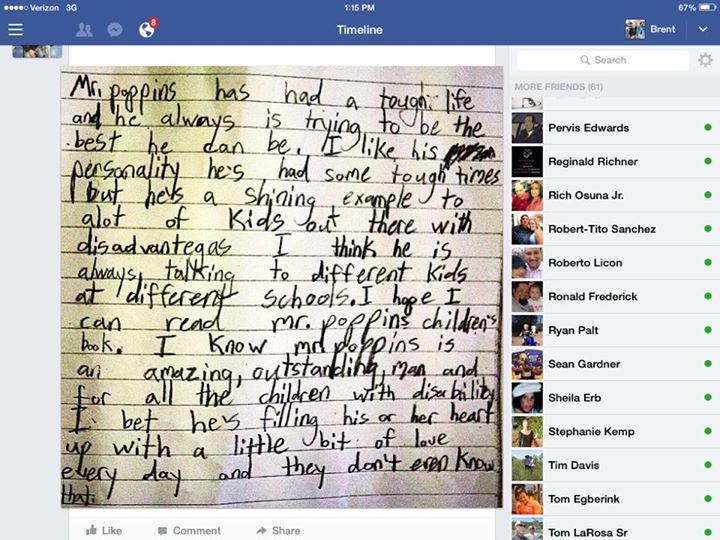 Verizon 3G
1:15 PM
67%
8
Timeline
Brent
Search
MORE FRIENDS (61)
Pervis Edwards
Reginald Richner
Rich Osuna Jr.
Robert-Tito Sanchez
Roberto Licon
Ronald Frederick
Ryan Palt
Sean Gardner
Sheila Erb
Stephanie Kemp
Tim Davis
Tom Egberink
Tom LaRosa Sr
Mr. poppins has had a tough life
and he always is trying to be the
best he can be. I like his
personality he's had some tough times
but he's a shining example to
alot of Kids out there with
disadvantegas I think he is
always, talking to different kids
at different schools. I hope I
can read mr. poppins children's
book. I Know mr. poppins is
an amazing, outstanding, man and
for all the children with disability
I bet he's filling his or her heart
up with a little bit of love
every day and they don't even know
that.
Like Comment Share